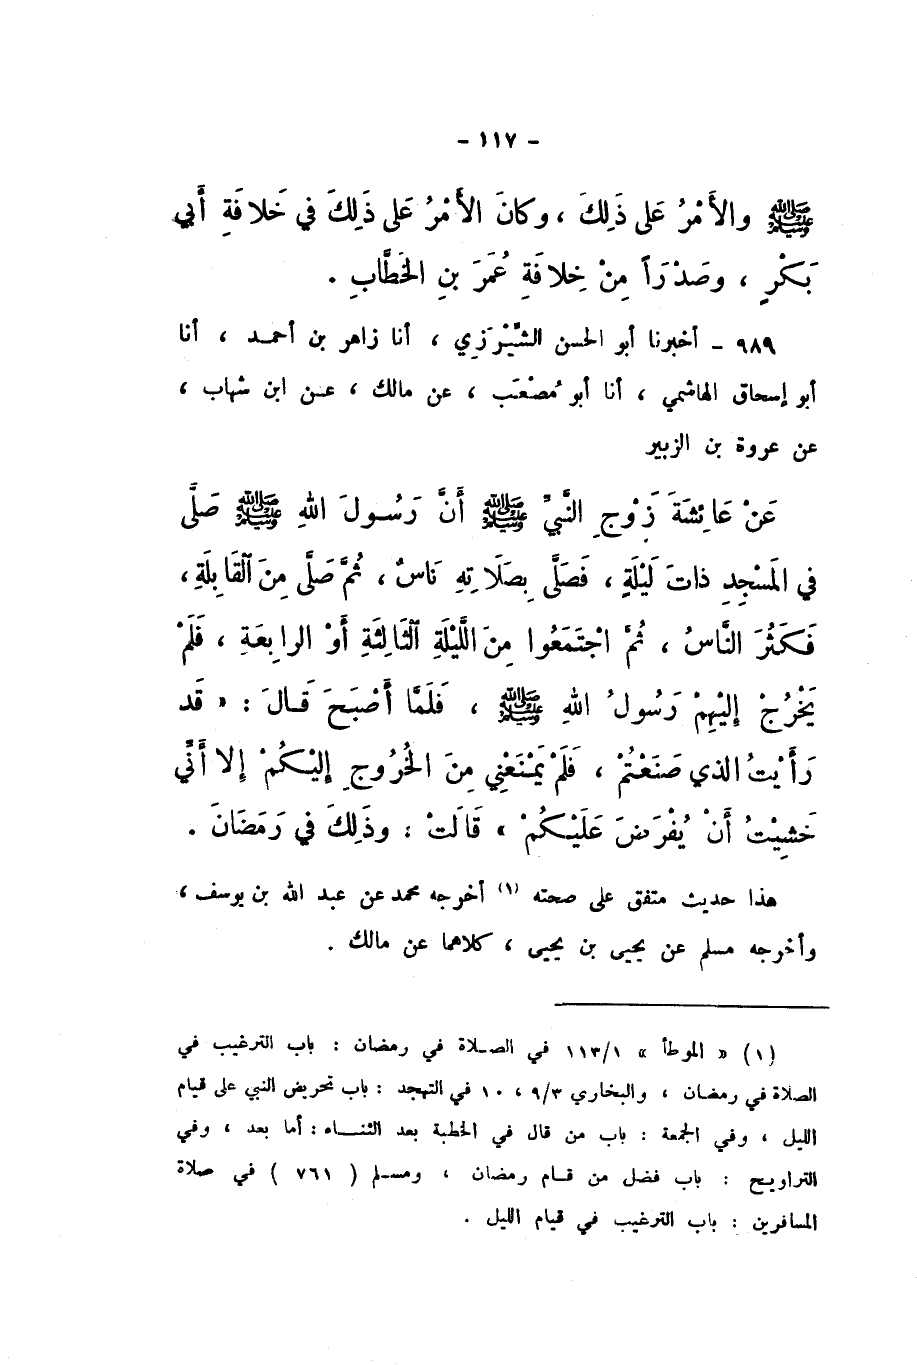 - ١١٧ -
ﷺ والأَمْرُ عَلى ذَلِكَ ، وكانَ الأَمْرُ عَلى ذَلِكَ في خَلافَةِ أَبي
بَكْرٍ ، وصَدْرَاً مِنْ خِلافَةِ عُمَرَ بنِ الخَطَّابِ .
٩٨٩ - أخبرنا أبو الحسن الشَّيْرَزي ، أنا زاهر بن أحمد ، أنا
أبو إسحاق الهاشمي ، أنا أبو مُصْعَب ، عن مالك ، عن ابن شهاب ،
عن عروة بن الزبير
عَنْ عَائِشَةَ زَوْجِ النَّبيِّ ﷺ أَنَّ رَسُولَ اللهِ ﷺ صَلَّى
في المَسْجِدِ ذاتَ لَيْلَةٍ ، فَصَلَّى بِصَلَاتِهِ نَاسٌ ، ثُمَّ صَلَّى مِنَ ٱلْقَابِلَةِ ،
فَكَثُرَ النَّاسُ ، ثُمَّ اجْتَمَعُوا مِنَ اللَّيْلَةِ ٱلثَّالِثَةِ أَوْ الرابِعَةِ ، فَلَمْ
يَخْرُجْ إِلَيْهِمْ رَسُولُ اللهِ ﷺ ، فَلَمَّا أَصْبَحَ قَالَ : « قَد
رَأَيْتُ الذي صَنَعْتُمْ ، فَلَمْ يَمْنَعْنِي مِنَ الخُرُوجِ إِلَيْكُمْ إِلا أَنِّي
خَشِيْتُ أَنْ يُفْرَضَ عَلَيْكُمْ » قَالَتْ : وذَلِكَ في رَمَضَانَ .
هذا حديث متفق على صحته (١) أخرجه محمد عن عبد الله بن يوسف ،
وأخرجه مسلم عن يحيى بن يحيى ، كلاهما عن مالك .
(١) « الموطأ » ١١٣/١ في الصلاة في رمضان : باب الترغيب في
الصلاة في رمضان ، والبخاري ٩/٣ ، ١٠ في التهجد : باب تحريض النبي على قيام
الليل ، وفي الجمعة : باب من قال في الخطبة بعد الثناء : أما بعد ، وفي
التراويح : باب فضل من قام رمضان ، ومسلم ( ٧٦١ ) في صلاة
المسافرين : باب الترغيب في قيام الليل .